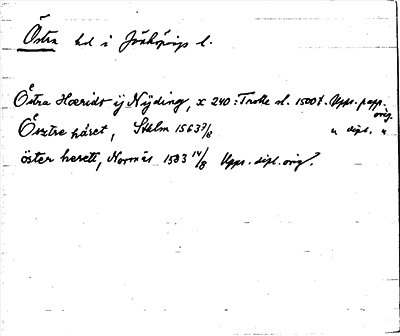 Östra hd i Jönköpings l.
Östra Hæridt ij Nijding, x 240: Trolle sl. 1500t. Upps. papp. orig.
Ösztre häret, Sthlm 1563 7/8 " dipl. "
öster herett, Normäs 1583 14/8 Upps. dipl. orig.